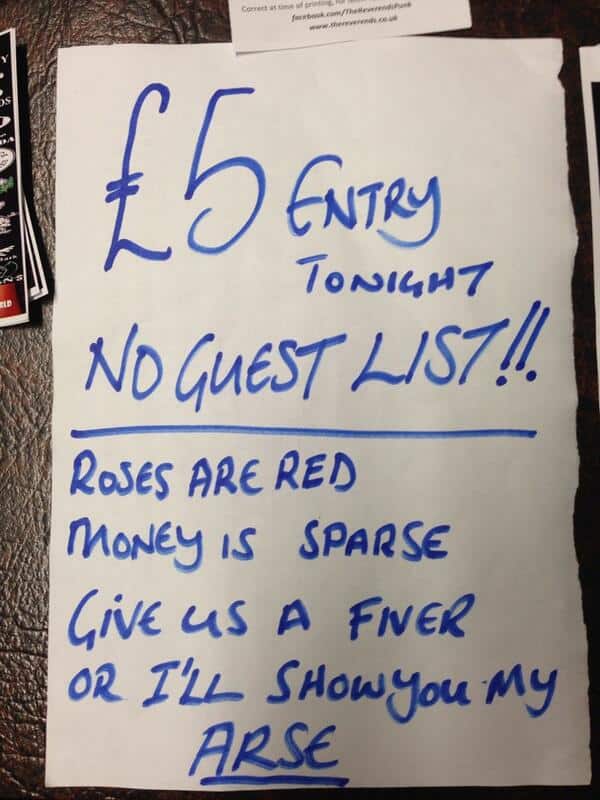 Correct at time of printing, for
facebook.com/TheReverendsPunk
www.thereverends.co.uk
£5 ENTRY
TONIGHT
NO GUEST LIST!!
ROSES ARE RED
MONEY IS SPARSE
GIVE US A FIVER
OR I'LL SHOW YOU MY
ARSE